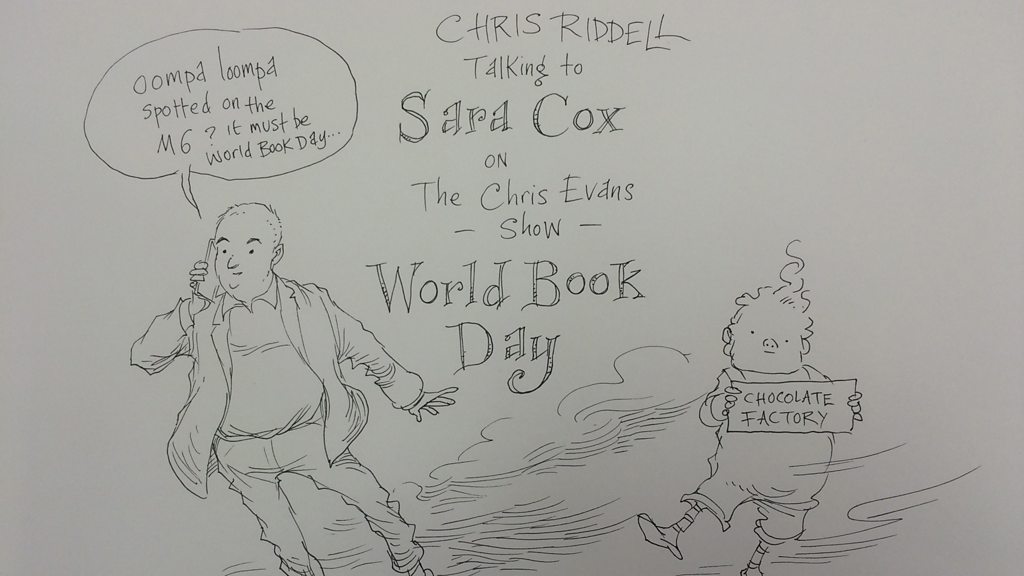 oompa loompa
spotted on the
M6 ? it must be
World Book Day...
CHRIS RIDDELL
Talking to
Sara Cox
ON
The Chris Evans
- Show -
World Book
Day
CHOCOLATE
FACTORY